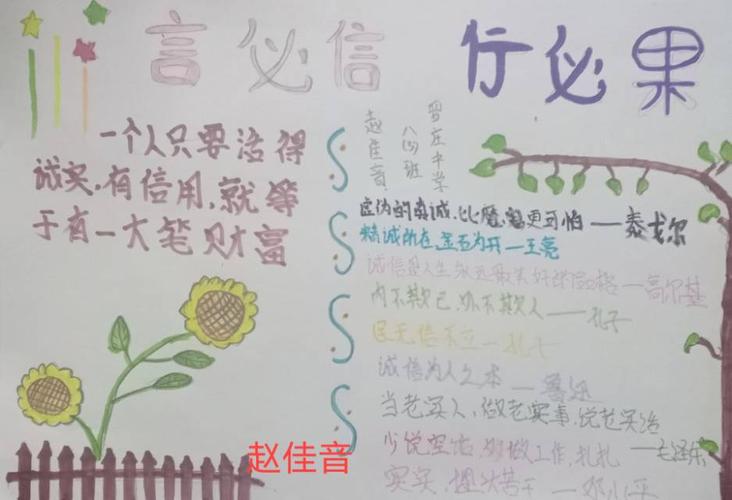 言必信 行必果
一个人只要活得
诚实,有信用,就等
于有一大笔财富
曹庄中学
八(4)班
赵佳音
虚伪的真诚,比魔鬼更可怕——泰戈尔
精诚所在,金石为开——王亮
诚信是人生永远最美好的品格——高尔基
内不欺己,外不欺人——孔子
民无信不立——孔子
诚信为人之本——鲁迅
当老实人,做老实事,说老实话
——毛泽东
少说空话,多做工作,扎扎
实实,埋头苦干——邓小平
赵佳音